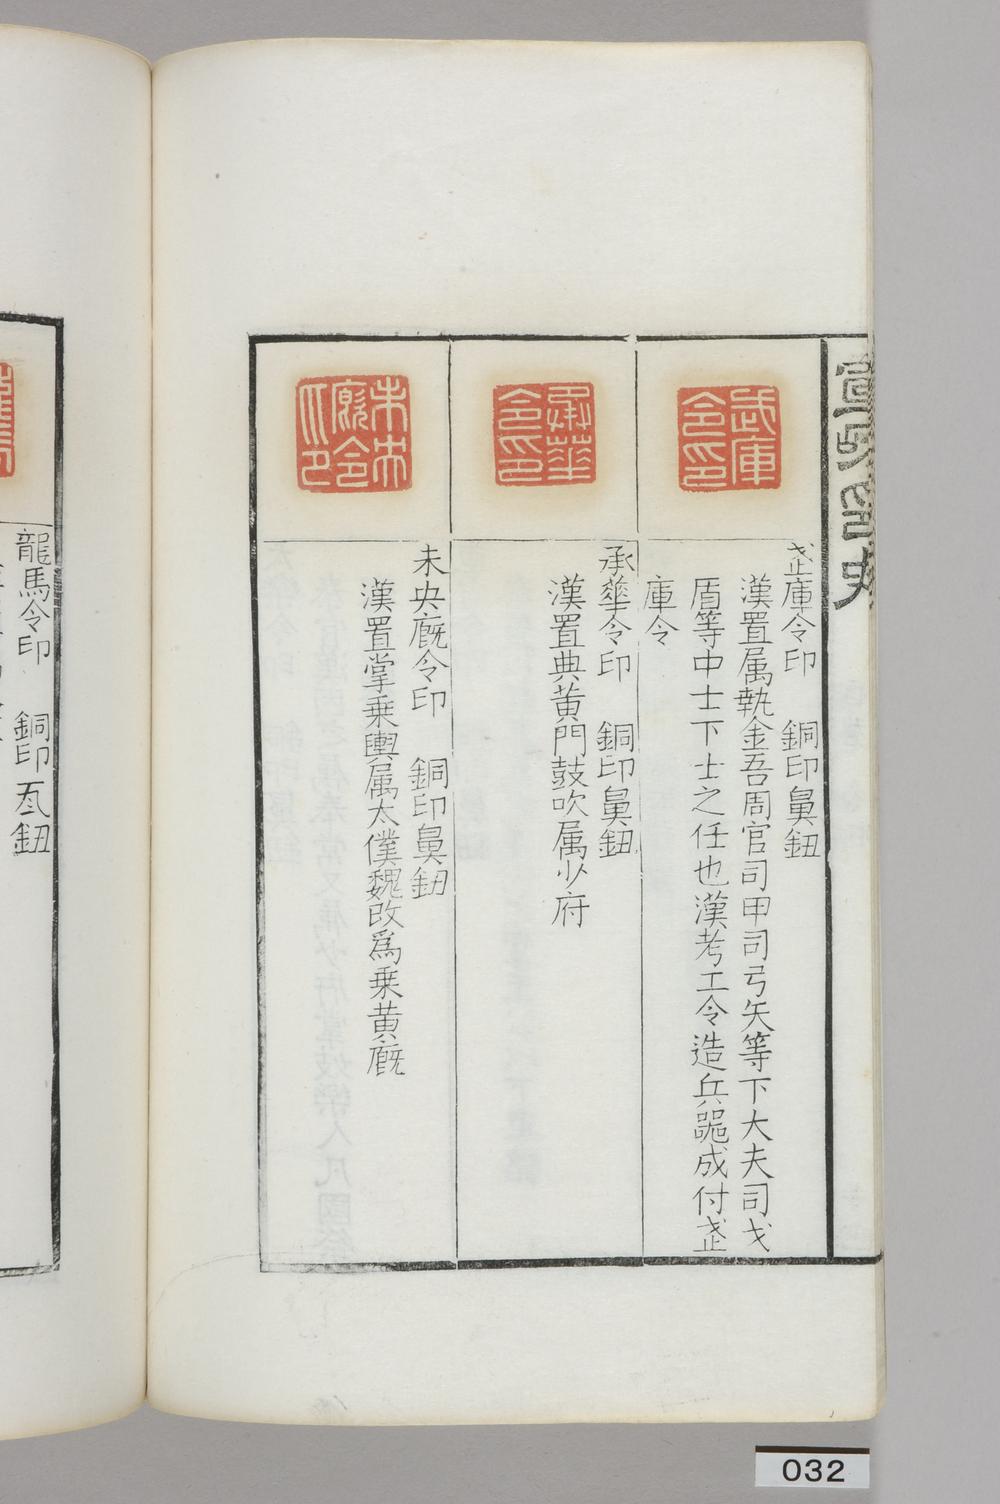 武庫令印
武庫令印　銅印鼻鈕
漢置属執金吾周官司甲司弓矢等下大夫司戈
盾等中士下士之任也漢考工令造兵器成付武
庫令
承華令印
承華令印　銅印鼻鈕
漢置典黄門鼓吹属少府
未央廄令印
未央廐令印　銅印鼻鈕
漢置掌乗輿属太僕魏改爲乗黄廐
龍馬令印　銅印瓦鈕
032